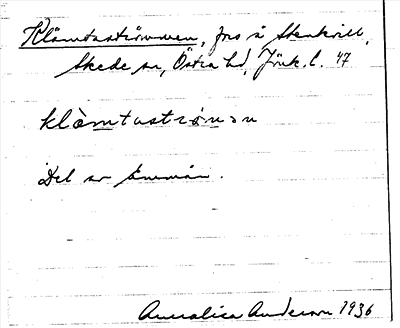 Klämtaströmmen, frs å Stenkvill,
Skede sn, Östra hd, Jönk. l. 47
klämtaströmən
Del av Emmån.
Annalisa Anderson 1936